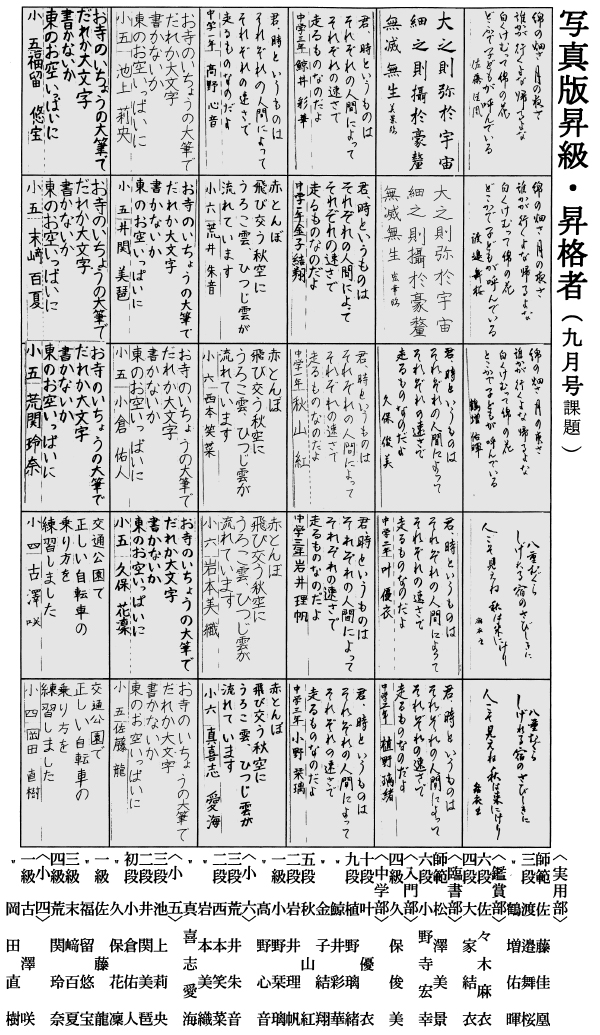 写真版昇級・昇格者(九月号課題)
綿の畑さ月の夜で
誰が行くよな帰るよな
白くけむって綿の花
どこかで子どもが呼んでいる
佐藤佳凰
大之則弥於宇宙
細之則攝於豪釐
無滅無生
君、時というものは
それぞれの人間によって
それぞれの速さで
走るものなのだよ
中学三年 鯨井彩華
君、時というものは
それぞれの人間によって
それぞれの速さで
走るものなのだよ
中学一年 高野心音
お寺のいちょうの大筆で
だれか大文字
書かないか
東のお空いっぱいに
小五 池上莉央
お寺のいちょうの大筆で
だれか大文字
書かないか
東のお空いっぱいに
小五 福留悠宝
綿の畑さ月の夜さ
誰が行くよな帰るよな
白くけむって綿の花
どこかで子どもが呼んでいる
渡邉舞桜
大之則弥於宇宙
細之則攝於豪釐
無滅無生
君、時というものは
それぞれの人間によって
それぞれの速さで
走るものなのだよ
中学一年 金子結翔
赤とんぼ
飛び交う秋空に
うろこ雲、ひつじ雲が
流れています
小六 荒井朱音
お寺のいちょうの大筆で
だれか大文字
書かないか
東のお空いっぱいに
小五 井関美琶
お寺のいちょうの大筆で
だれか大文字
書かないか
東のお空いっぱいに
小五 末﨑百夏
綿の畑さ月の夜さ
誰が行くよな帰るよな
白くけむって綿の花
どこかで子どもが呼んでいる
鶴増佑暉
君、時というものは
それぞれの人間によって
それぞれの速さで
走るものなのだよ
久保俊美
君、時というものは
それぞれの人間によって
それぞれの速さで
走るものなのだよ
中学一年 秋山紅
赤とんぼ
飛び交う秋空に
うろこ雲、ひつじ雲が
流れています
小六 西本笑菜
お寺のいちょうの大筆で
だれか大文字
書かないか
東のお空いっぱいに
小五 小倉佑人
お寺のいちょうの大筆で
だれか大文字
書かないか
東のお空いっぱいに
小五 荒関玲奈
八重むぐら
しげれる宿のさびしきに
人こそ見えね
秋は来にけり
麻衣
君、時というものは
それぞれの人間によって
それぞれの速さで
走るものなのだよ
中学二年 叶優衣
君、時というものは
それぞれの人間によって
それぞれの速さで
走るものなのだよ
中学三年 岩井理帆
赤とんぼ
飛び交う秋空に
うろこ雲、ひつじ雲が
流れています
小六 岩本美織
お寺のいちょうの大筆で
だれか大文字
書かないか
東のお空いっぱいに
小五 久保花凜
交通公園で
正しい自転車の
乗り方を
練習しました
小四 古澤咲
八重むぐら
しげれる宿のさびしきに
人こそ見えね
秋は来にけり
結衣
君、時というものは
それぞれの人間によって
それぞれの速さで
走るものなのだよ
中学二年 植野璃緒
君、時というものは
それぞれの人間によって
それぞれの速さで
走るものなのだよ
中学二年 小野栞璃
赤とんぼ
飛び交う秋空に
うろこ雲、ひつじ雲が
流れています
小六 真喜志愛海
お寺のいちょうの大筆で
だれか大文字
書かないか
東のお空いっぱいに
小五 佐藤龍
交通公園で
正しい自転車の
乗り方を
練習しました
小四 岡田直樹
〈実用部〉
師範 佐藤佳凰
三段 渡邉舞桜
〃 鶴増佑暉
〈鑑賞部〉
六段 佐々木麻衣
四段 大家結衣
〈臨書部〉
師範 松澤美景
六段 小野寺宏幸
〈入門部〉
四級 久保俊美
〈中学部〉
十段 叶優衣
九段 植野璃緒
〃 鯨井彩華
〃 金子結翔
五段 秋山紅
二段 岩井理帆
一級 小野栞璃
〃 高野心音
〈小六〉
三段 荒井朱音
二段 西本笑菜
〃 岩本美織
〃 真喜志愛海
〈小五〉
三段 池上莉央
二段 井関美琶
初段 小倉佑人
〃 久保花凜
一級 佐藤龍
〃 福留悠宝
三級 末﨑百夏
四級 荒関玲奈
〈小四〉
一級 古澤咲
〃 岡田直樹